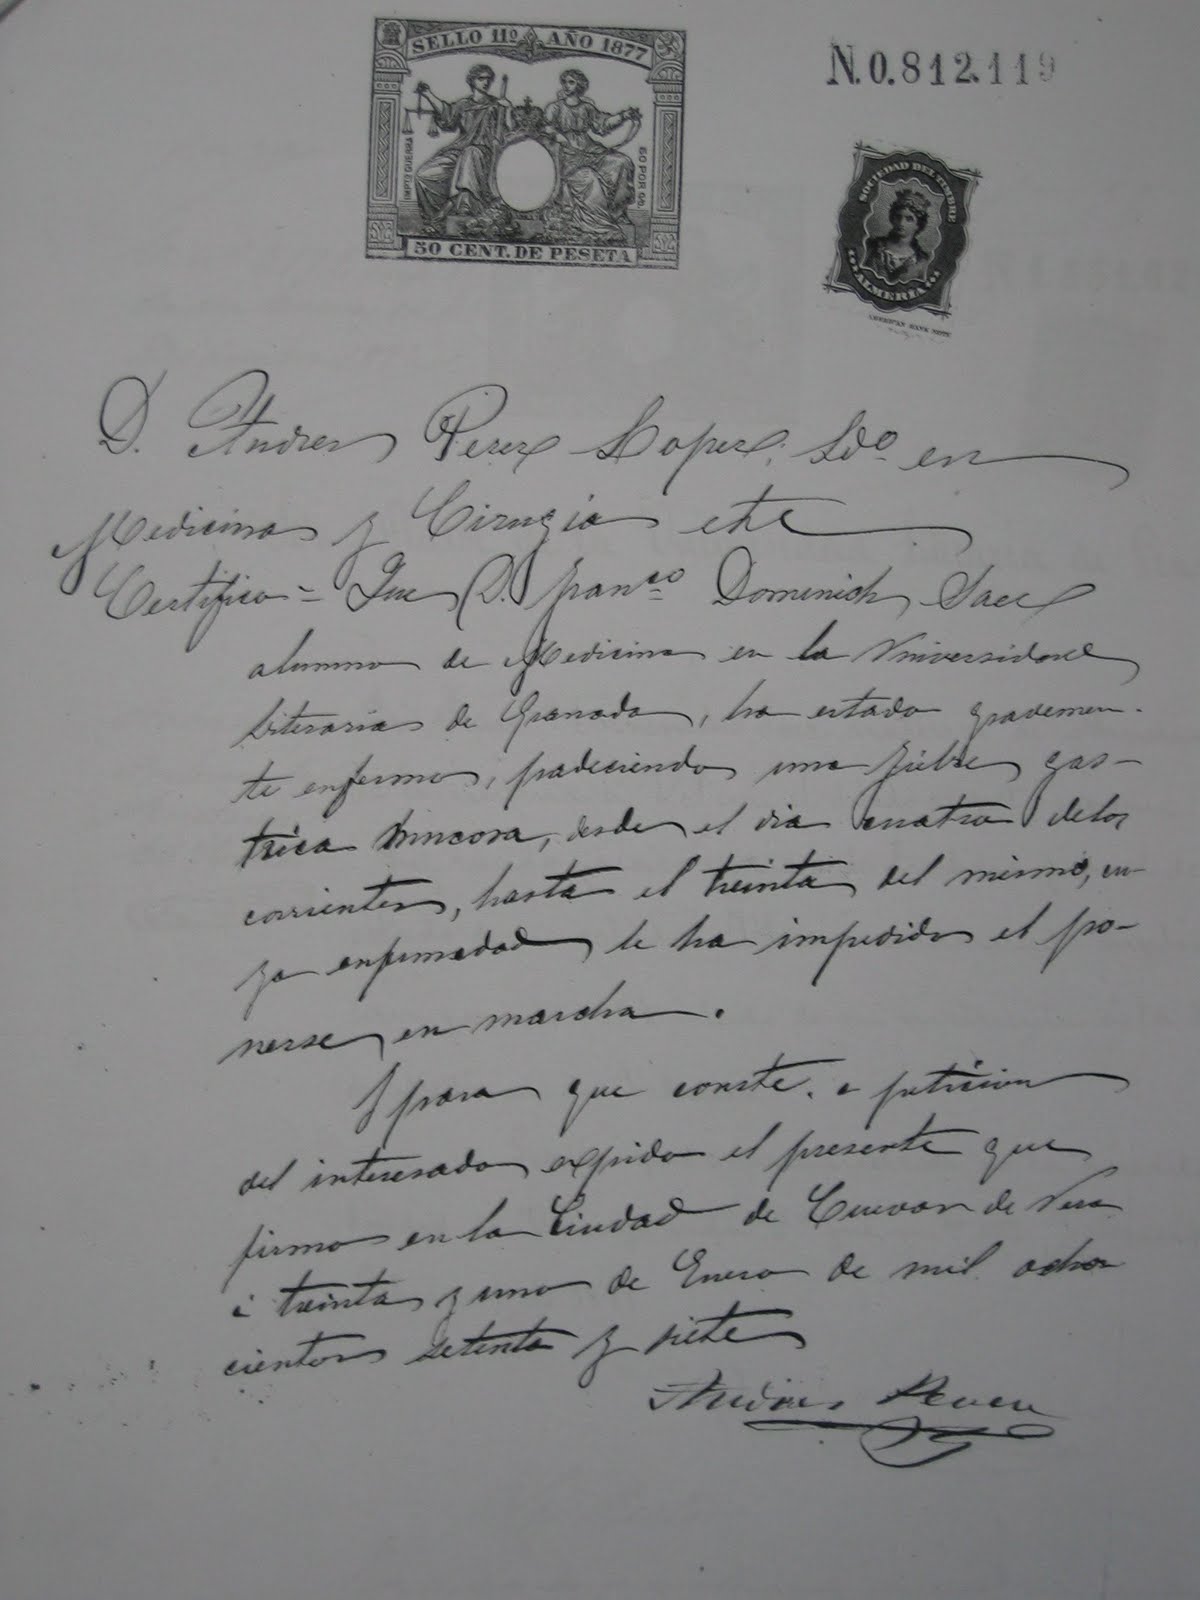 SELLO 11º AÑO 1877
IMPTS GUERRA
50 POR 00.
50 CENT. DE PESETA
N.0.812.119
SOCIEDAD DEL TIMBRE
ALMERIA
AMERICAN BANK NOTE
D. Andres Perez Lopez, Ldo. en
Medicina y Cirugia etc
Certifico = Que D. Franco. Domenich Saez
alumno de Medicina en la Universidad
Literaria de Granada, ha estado gravemen-
te enfermo, padeciendo una fiebre gas-
trica mucosa, desde el dia cuatro delos
corrientes, hasta el treinta del mismo, cu-
ya enfermedad le ha impedido el po-
nerse en marcha.
Y para que conste. a peticion
del interesado expido el presente que
firmo en la Ciudad de Cuevas de Vera
a treinta y uno de Enero de mil ocho
cientos setenta y siete
Andres Perez